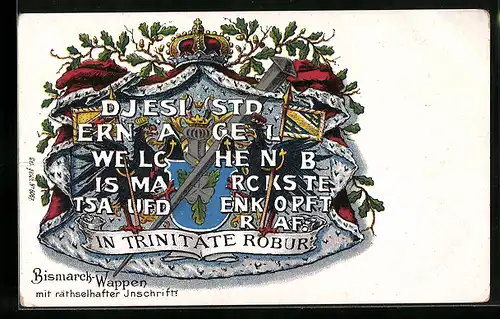 DJESI STD
ERN A GEL
WELC HENB
ISMA RCKSTE
TSA UFD ENKOPFT
RAF.
IN TRINITATE ROBUR
Bismarck-Wappen
mit räthselhafter Jnschrift!